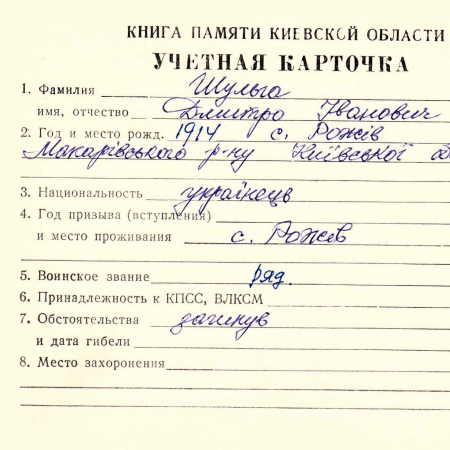 КНИГА ПАМЯТИ КИЕВСКОЙ ОБЛАСТИ
УЧЕТНАЯ КАРТОЧКА
1. Фамилия Шульга
имя, отчество Дмитро Іванович
2. Год и место рожд. 1914 с. Рожів
Макарівського р-ну Київської об
3. Национальность українець
4. Год призыва (вступления)
и место проживания с. Рожев
5. Воинское звание ряд.
6. Принадлежность к КПСС, ВЛКСМ
7. Обстоятельства загинув
и дата гибели
8. Место захоронения